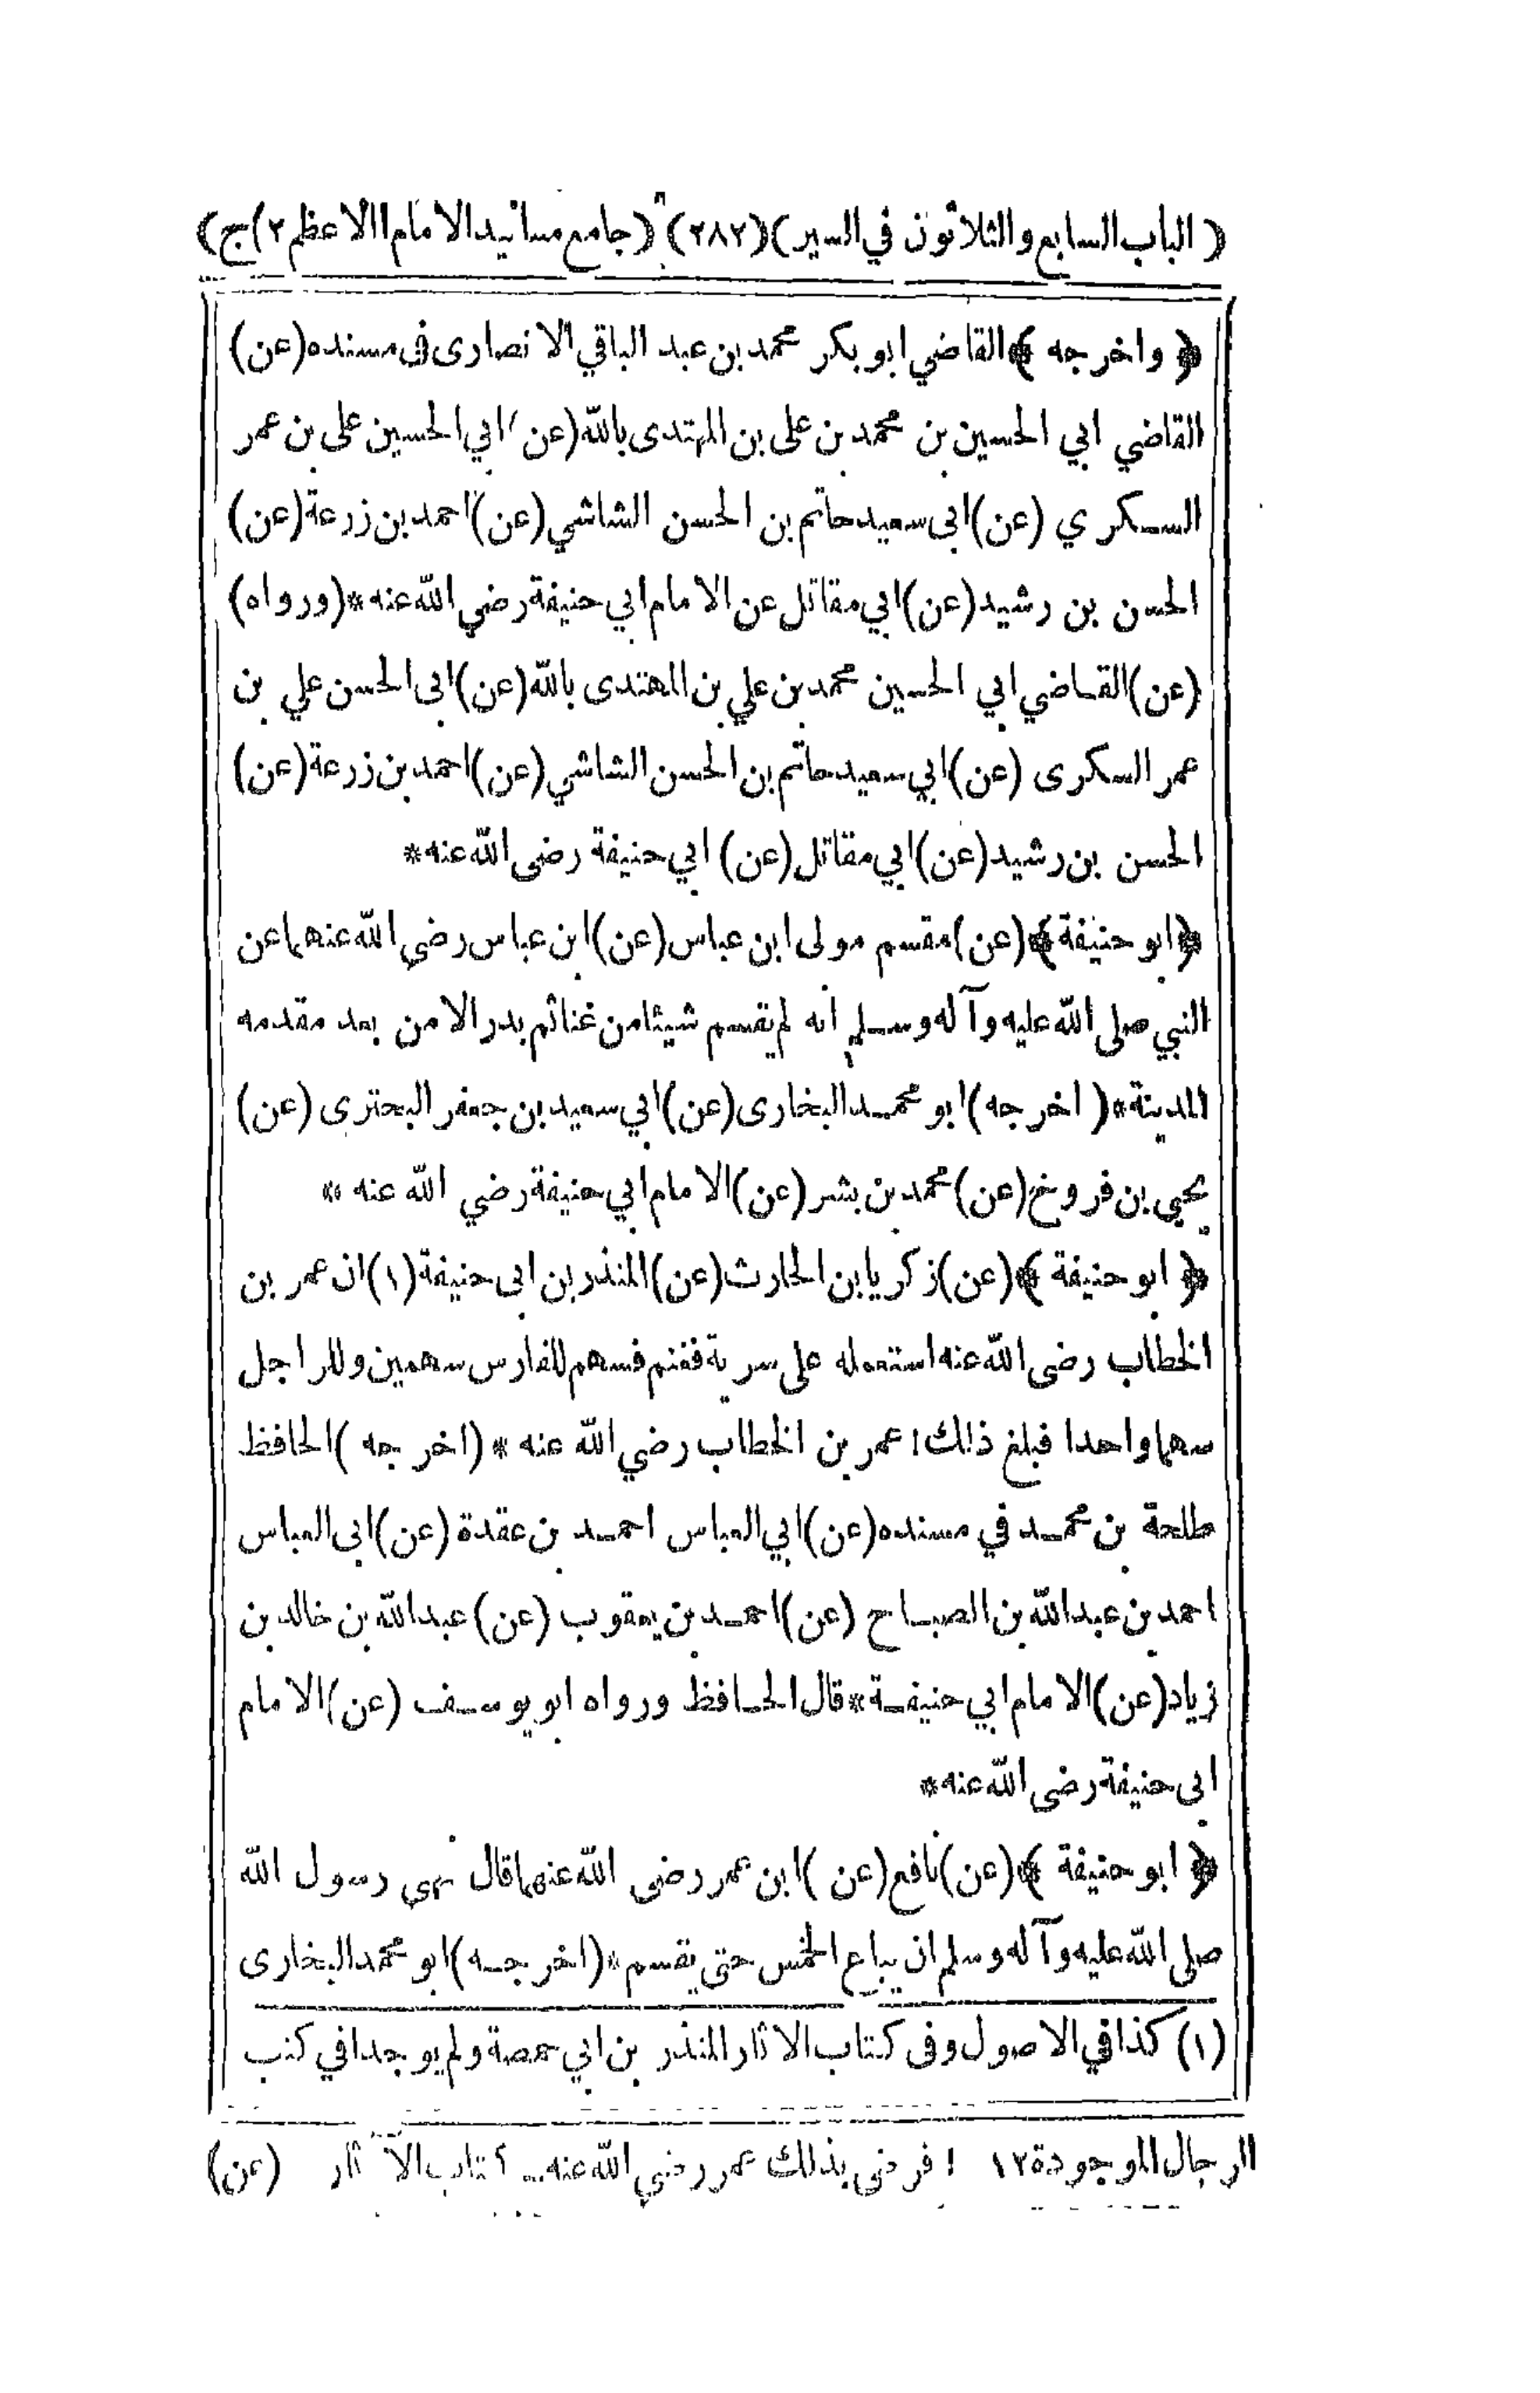 ( الباب السابع والثلاثون في السير ) (٢٨٢) ( جامع مسانيد الامام االاعظم ٢)ج)
﴿ واخرجه ﴾ القاضي ابو بكر محمد بن عبد الباقي الانصارى فى مسنده (عن)
القاضي ابي الحسين بن محمد بن على بن المهتدى بالله (عن) ابي الحسين على بن عمر
السكري (عن) ابى سعيد حاتم بن الحسن الشاشي (عن) احمد بن زرعة (عن)
الحسن بن رشيد (عن) ابي مقاتل عن الامام ابي حنيفة رضي الله عنه * (ورواه)
(عن) القاضي ابي الحسين محمد بن علي بن المهتدى بالله (عن) ابى الحسن علي بن
عمر السكرى (عن) ابي سعيد حاتم بن الحسن الشاشي (عن) احمد بن زرعة (عن)
الحسن بن رشيد (عن) ابي مقاتل (عن) ابي حنيفة رضى الله عنه *
﴿ ابو حنيفة ﴾ (عن) مقسم مولى ابن عباس (عن) ابن عباس رضي الله عنهما عن
النبي صلى الله عليه وآله وسلم انه لم يقسم شيئا من غنائم بدر الا من بعد مقدمه
المدينة * ( اخرجه ) ابو محمد البخارى (عن) ابي سعيد بن جعفر البحترى (عن)
يحيى بن فروخ (عن) محمد بن بشر (عن) الامام ابي حنيفة رضي الله عنه *
﴿ ابو حنيفة ﴾ (عن) زكريا بن الحارث (عن) المنذر بن ابى حنيفة (١) ان عمر بن
الخطاب رضى الله عنه استعمله على سرية فغنم فسهم للفارس سهمين وللراجل
سهما واحدا فبلغ ذلك ! عمر بن الخطاب رضي الله عنه * (اخرجه ) الحافظ
طلحة بن محمد في مسنده (عن) ابي العباس احمد بن عقدة (عن) ابى العباس
احمد بن عبد الله بن الصباح (عن) احمد بن يعقوب (عن) عبد الله بن خالد بن
زياد (عن) الامام ابي حنيفة * قال الحافظ ورواه ابو يوسف (عن) الامام
ابى حنيفة رضى الله عنه *
﴿ ابو حنيفة ﴾ (عن) نافع (عن ) ابن عمر رضى الله عنهما قال نهى رسول الله
صلى الله عليه وآله وسلم ان يباع الخمس حتى يقسم * (اخرجه) ابو محمد البخارى
(١) كذا في الاصول وفى كتاب الاثار المنذر بن ابي حمصة ولم يوجدا في كتب
الرجال الموجودة ١٢ ! فرضى بذلك عمر رضي الله عنه كتاب الآثار (عن)